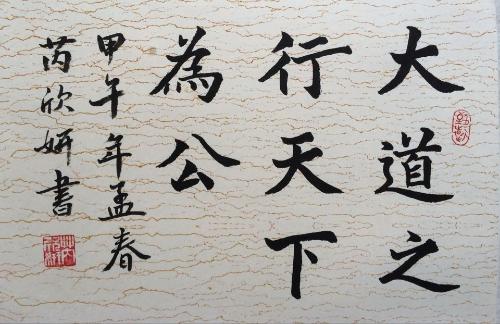 大道之
行天下
為公
甲午年孟春
芮欣妍書